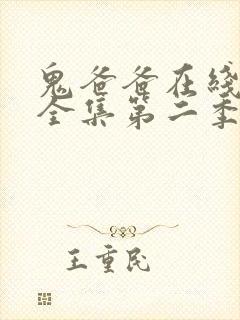 鬼爸爸在线
全集第二季
王重民